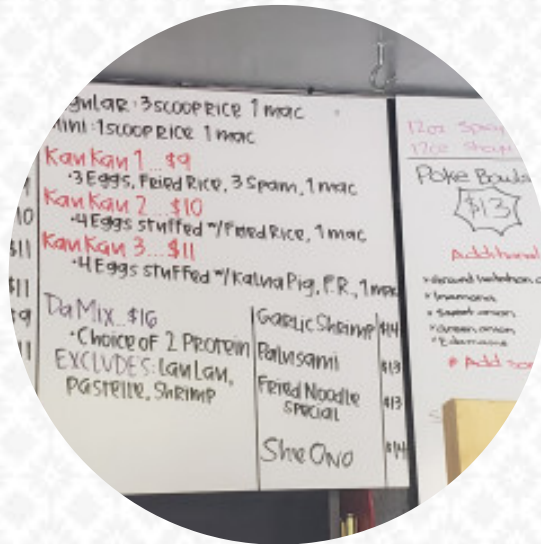 3 scoop Rice 1 mac
1 scoop Rice 1 mac
Kau Kau 1... $9
•3 Eggs, Fried Rice, 3 Spam, 1 mac
Kau Kau 2... $10
•4 Eggs stuffed w/ Fried Rice, 1 mac
Kau Kau 3... $11
•4 Eggs stuffed w/ Kalua Pig, F.R., 1 mac
Da Mix... $16
•Choice of 2 Protein
EXCLUDES: Lau Lau,
Pastelle, Shrimp
Garlic Shrimp $14
Palusami $13
Fried Noodle $13
Special
Shie Ono $14
10
$11
$11
12oz
12oz
Poke Bowls
$13
Inamona
Sweet onion
Green onion
Edamame
* Add